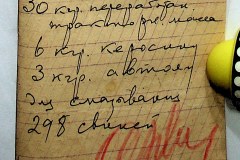 30 кгр. переработан.
тракторн. масла
6 кгр. керосину
3 кгр. автом
Для смазывания
298 свиней